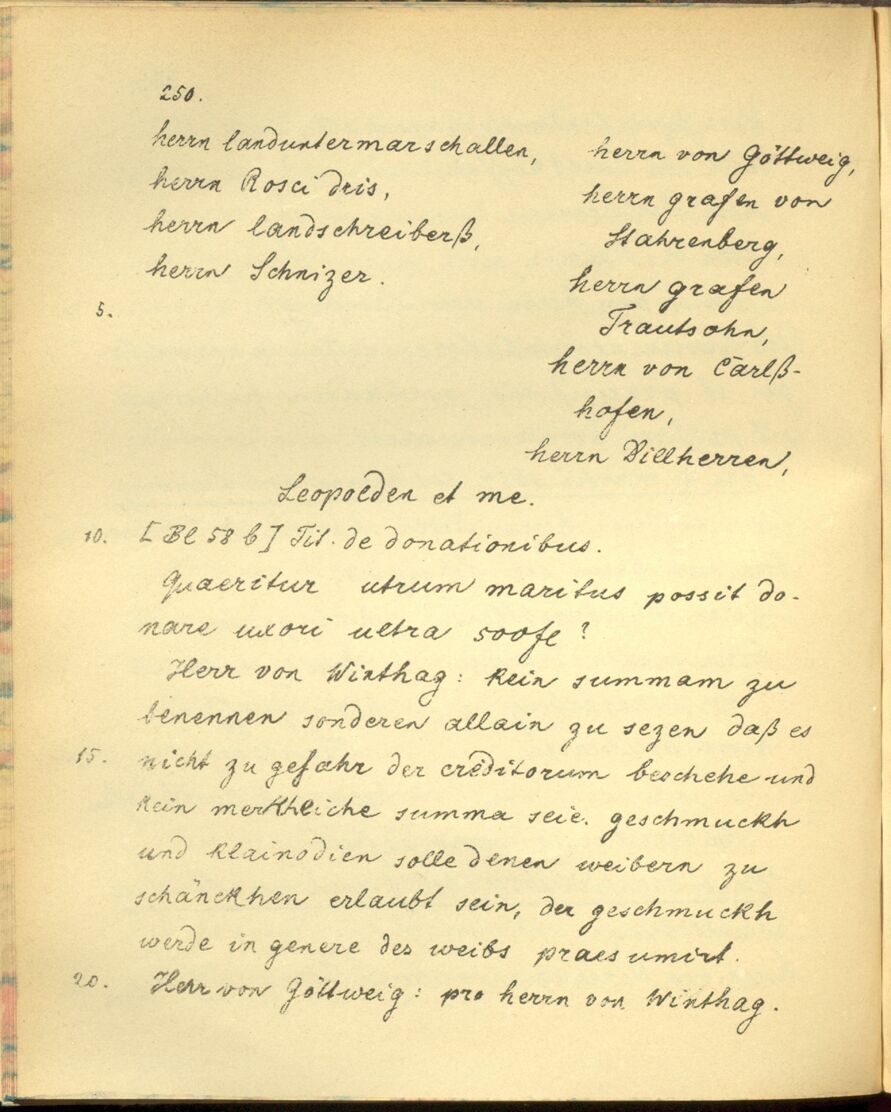 250.
herrn landuntermarschallen,
herrn Rosci dris,
herrn landschreiberß,
herrn Schnizer.
5.
herrn von Göttweig,
herrn grafen von
Stahrenberg,
herrn grafen
Trautsohn,
herrn von Carlß-
hofen,
herrn Dillherren,
Leopolden et me.
10. [Bl 58 b] Tit. de donationibus.
Quaeritur utrum maritus possit do-
nare uxori ultra 500fl?
Herr von Winthag: Kein summam zu
benennen sonderen allain zu sezen daß es
15. nicht zu gefahr der creditorum beschehe und
kein merkhliche summa seie. geschmuckh
und klainodien solle denen weibern zu
schänckhen erlaubt sein, der geschmuckh
werde in genere des weibs praesumirt.
20. Herr von Göttweig: pro herrn von Winthag.